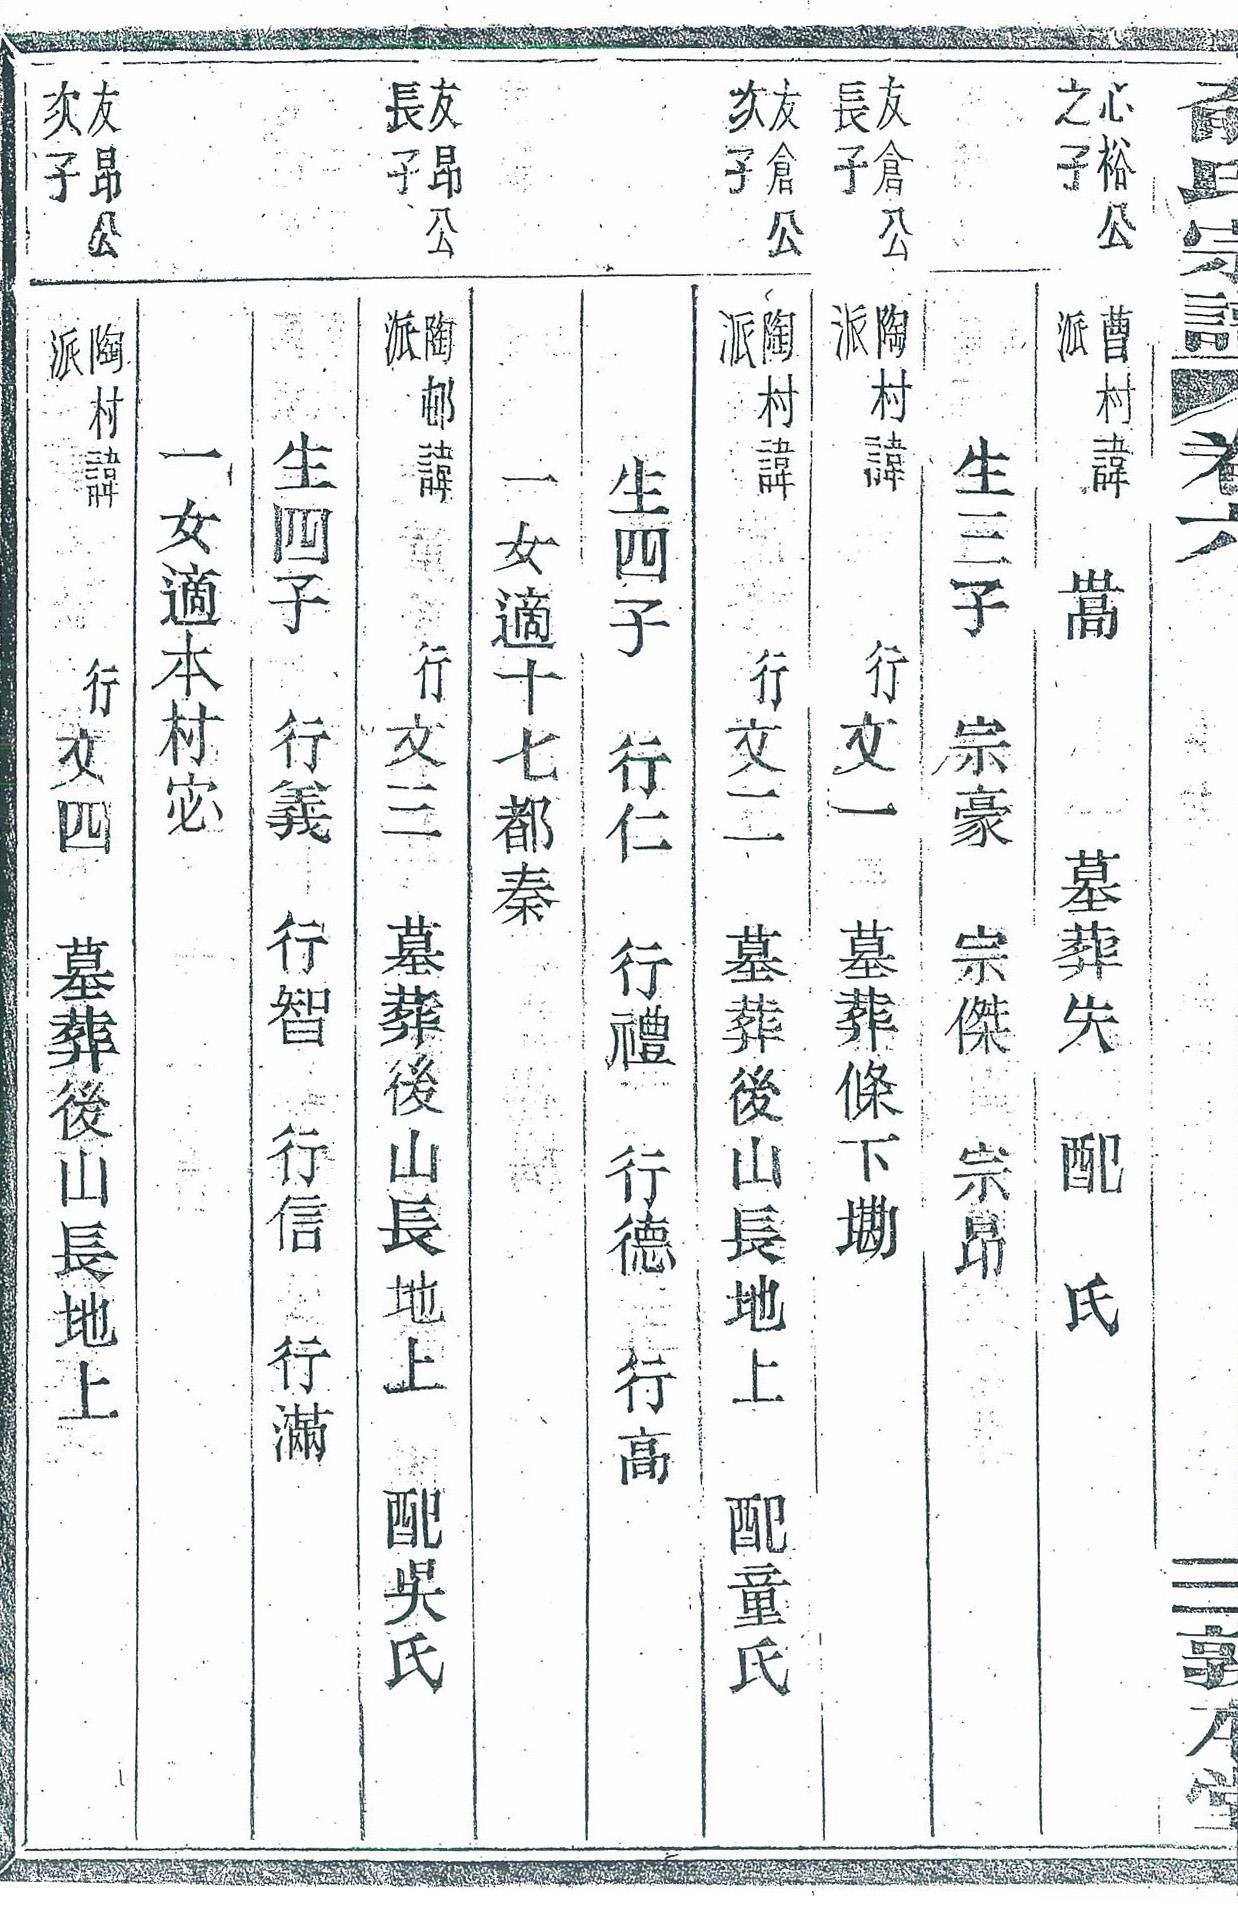 氏宗譜 卷六 三 敦本堂
心裕公
之子
曹村諱
派
嵩 墓葬失 配 氏
生三子 宗豪 宗傑 宗昂
友倉公
長子
陶村諱
派
行文一 墓葬條下墈
友倉公
次子
陶村諱
派
行文二 墓葬後山長地上 配童氏
生四子 行仁 行禮 行德 行高
一女適十七都秦
友昂公
長子
陶邨諱
派
行文三 墓葬後山長地上 配吳氏
生四子 行義 行智 行信 行滿
一女適本村宓
友昂公
次子
陶村諱
派
行文四 墓葬後山長地上